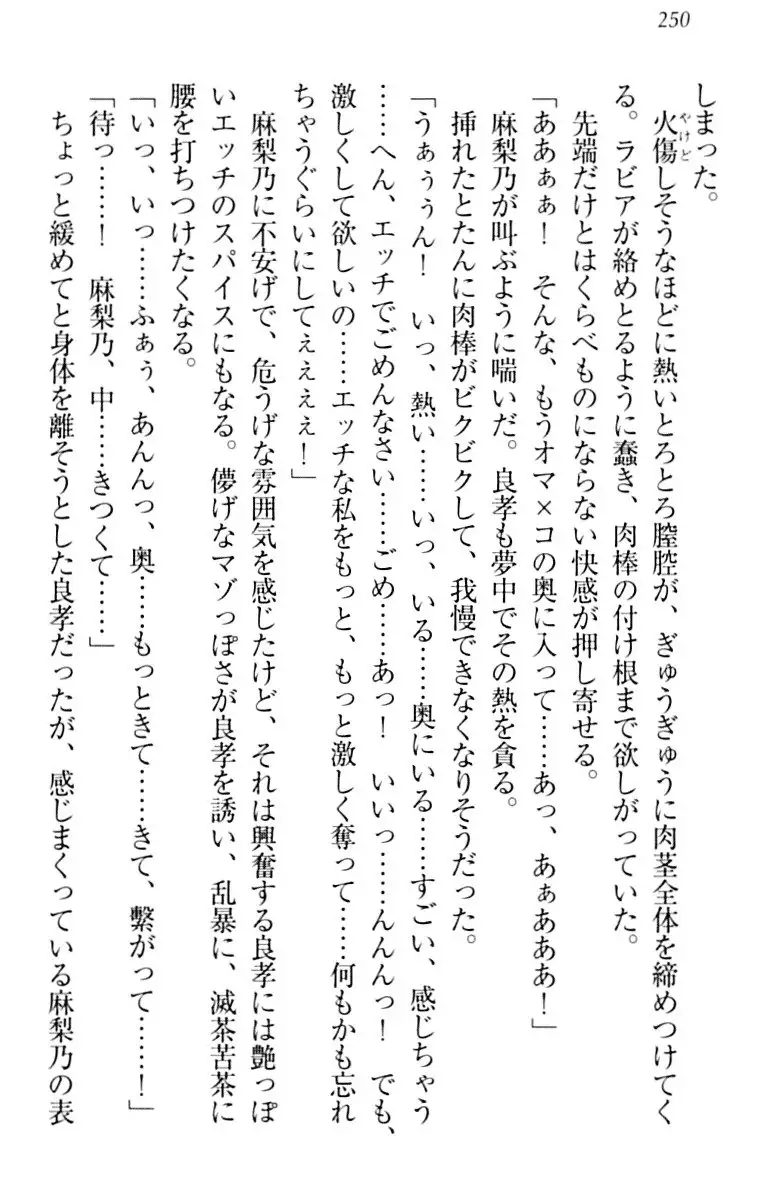 250
しまった。
火傷しそうなほどに熱いとろとろ膣腔が、ぎゅうぎゅうに肉茎全体を締めつけてく
やけど
る。ラビアが絡めとるように蠢き、肉棒の付け根まで欲しがっていた。
先端だけとはくらべものにならない快感が押し寄せる。
「ああぁぁ！　そんな、もうオマ×コの奥に入って……あっ、あぁあああ！」
麻梨乃が叫ぶように喘いだ。良孝も夢中でその熱を貪る。
挿れたとたんに肉棒がビクビクして、我慢できなくなりそうだった。
「うぁぅぅん！　いっ、熱い……いっ、いる……奥にいる……すごい、感じちゃう
……へん、エッチでごめんなさい……ごめ……あっ！　いいっ……んんんっ！　でも、
激しくして欲しいの……エッチな私をもっと、もっと激しく奪って……何もかも忘れ
ちゃうぐらいにしてぇぇぇぇ！」
麻梨乃に不安げで、危うげな雰囲気を感じたけど、それは興奮する良孝には艶っぽ
いエッチのスパイスにもなる。儚げなマゾっぽさが良孝を誘い、乱暴に、滅茶苦茶に
腰を打ちつけたくなる。
「いっ、いっ……ふぁぅ、あんんっ、奥……もっときて……きて、繋がって……！」
「待っ……！　麻梨乃、中……きつくて……」
ちょっと緩めてと身体を離そうとした良孝だったが、感じまくっている麻梨乃の表